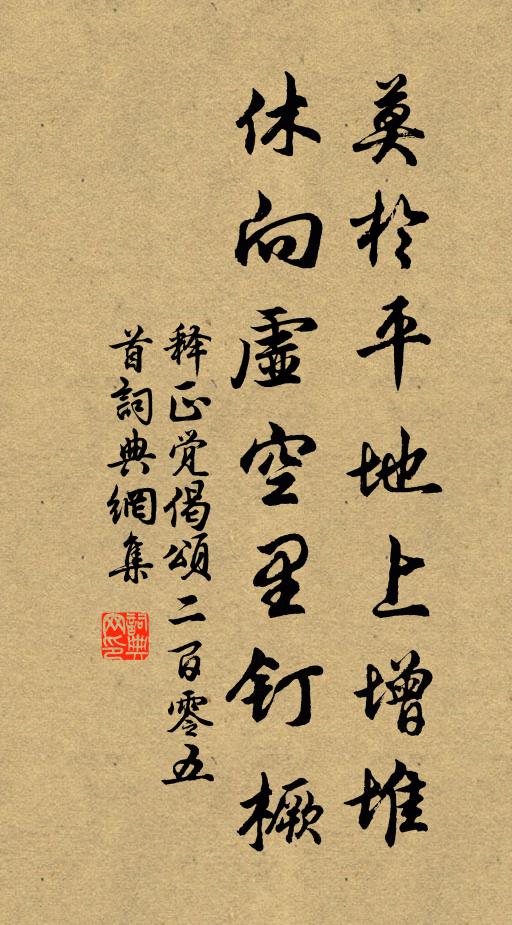 莫於平地上增堆
休向虛空里钉橛
释正觉偈頌二百零五
首詞典網集
詞典網印